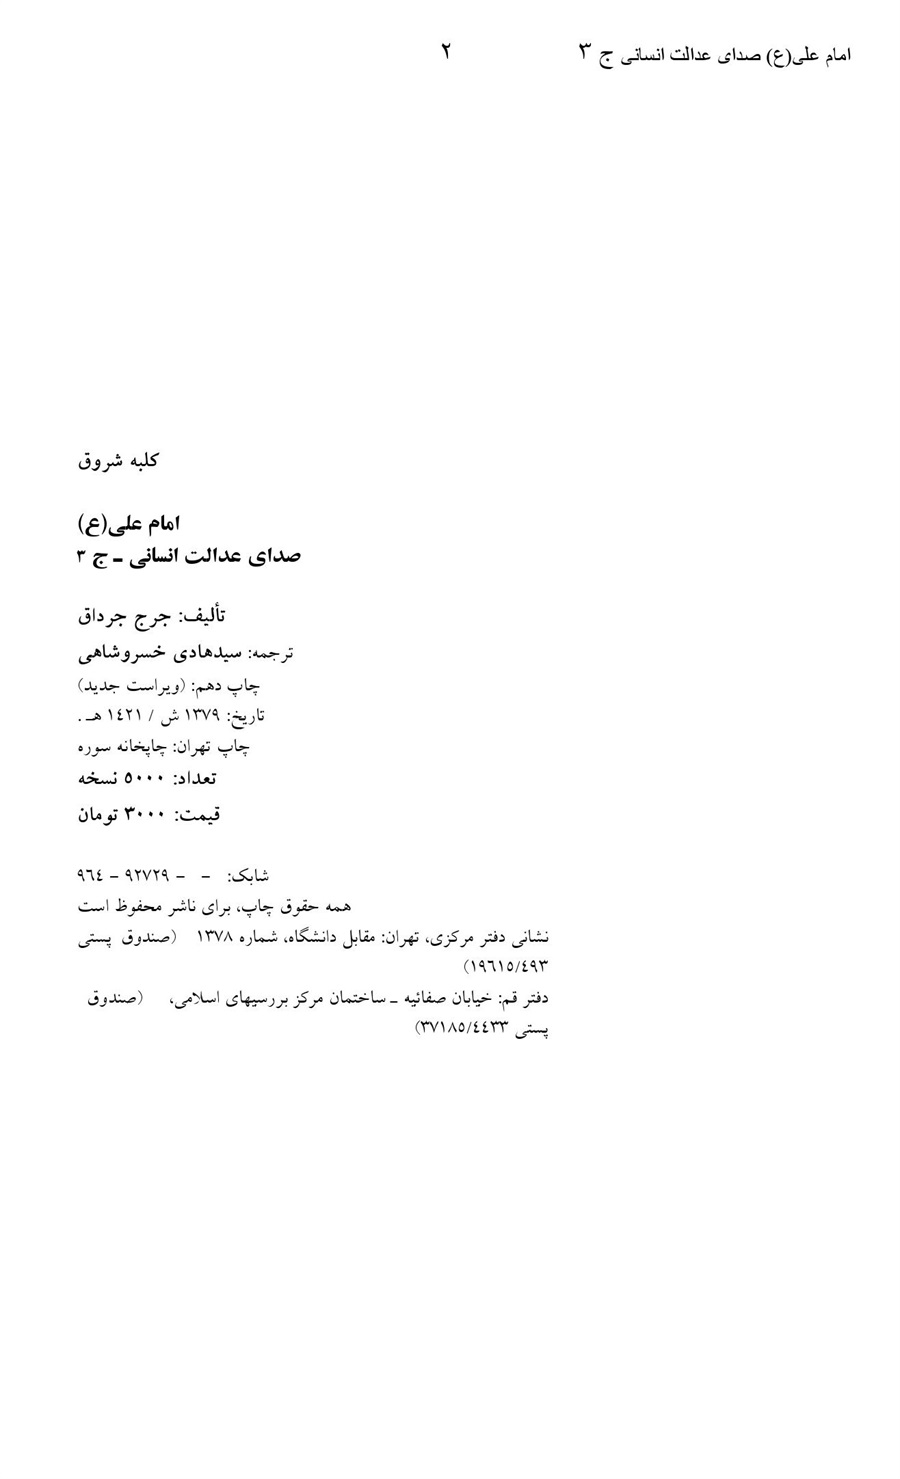 امام علی(ع) صدای عدالت انسانی ج ۳ ۲
کلبه شروق
امام علی(ع)
صدای عدالت انسانی ـ ج ۳
تألیف: جرج جرداق
ترجمه: سیدهادی خسروشاهی
چاپ دهم: (ویراست جدید)
تاریخ: ۱۳۷۹ ش / ۱٤۲۱ هـ .
چاپ تهران: چاپخانه سوره
تعداد: ٥۰۰۰ نسخه
قیمت: ۳۰۰۰ تومان
شابک: - - ۹۲۷۲۹ - ۹٦٤
همه حقوق چاپ، برای ناشر محفوظ است
نشانی دفتر مرکزی، تهران: مقابل دانشگاه، شماره ۱۳۷۸ (صندوق پستی
۱۹٦۱٥/٤۹۳)
دفتر قم: خیابان صفائیه ـ ساختمان مرکز بررسیهای اسلامی، (صندوق
پستی ۳۷۱۸٥/٤٤۳۳)